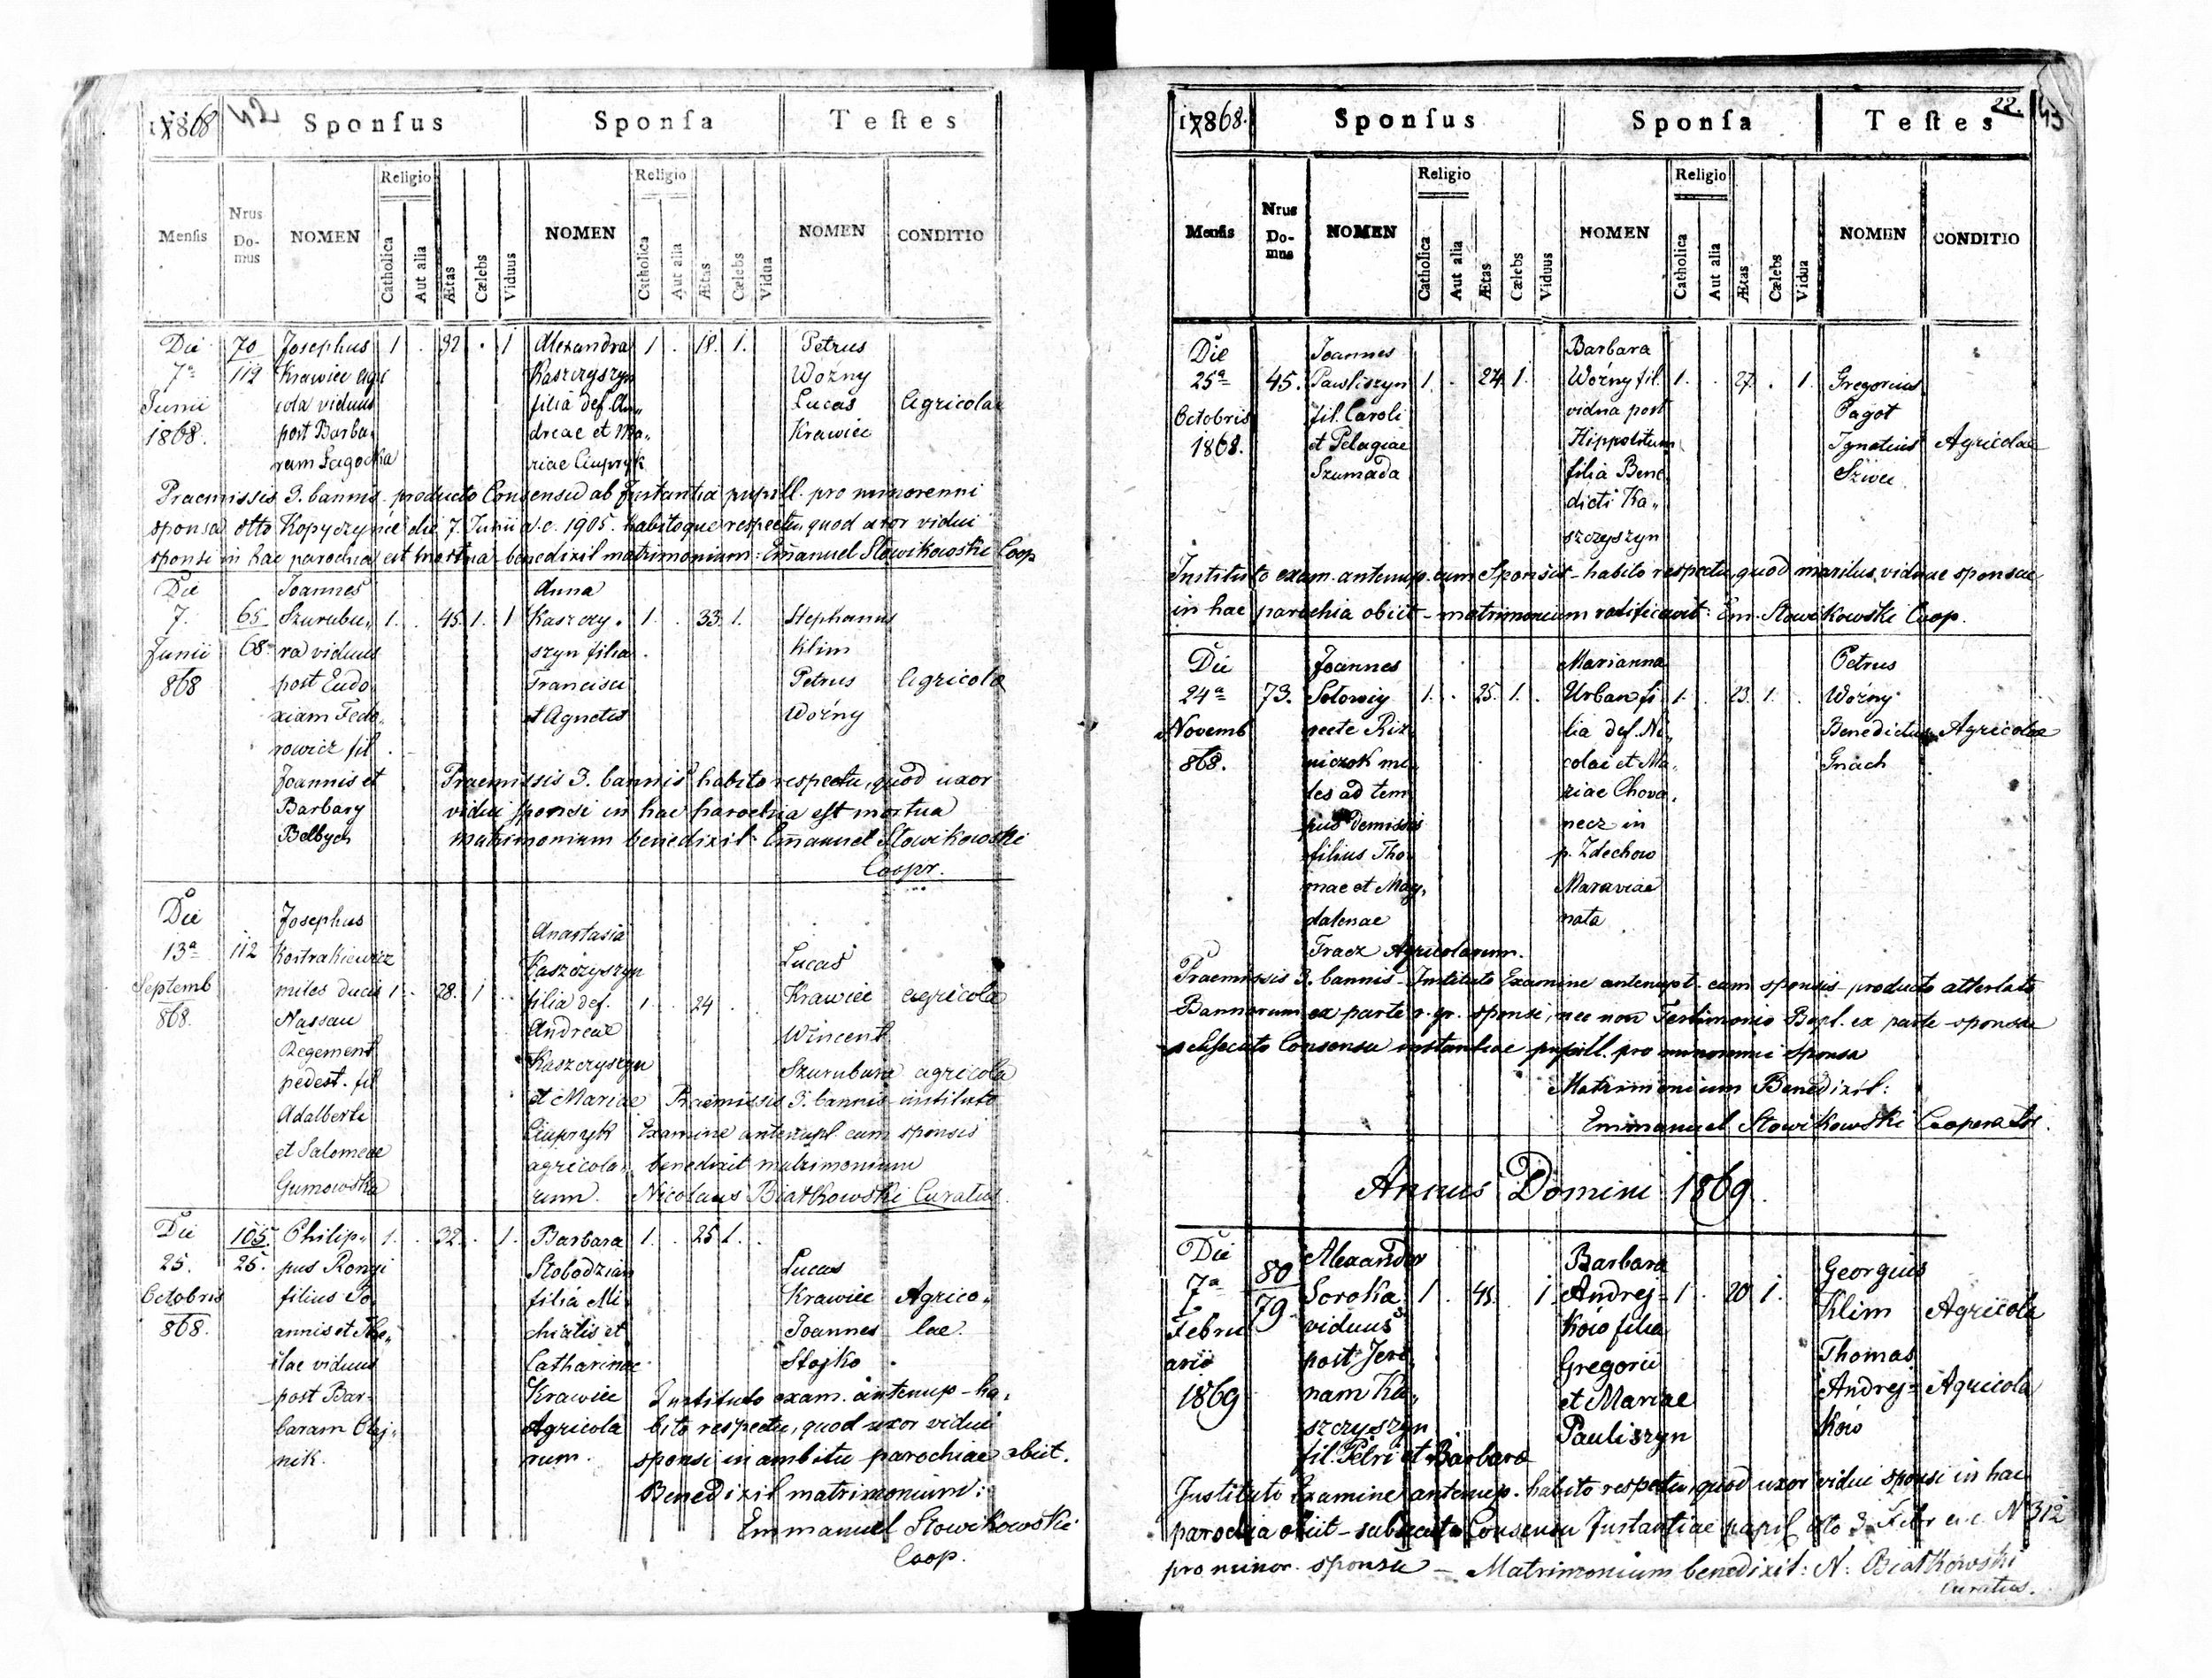 1868 42 Sponsus Sponsa Testes
Mensis Nrus Domus NOMEN Religio Catholica Aut alia Ætas Cælebs Viduus NOMEN Religio Catholica Aut alia Ætas Cælebs Vidua NOMEN CONDITIO
Die 70 Josephus 1 . 32 . 1 Alexandra 1 . 18. 1. Petrus
7a 112 Krawiec agri Kaszczyszyn Wozny
Junii cola viduus filia def. An„ Lucas Agricolae
1868. post Barba„ dreae et Ma„ Krawiec
ram Łagocka riae Ciupryk
Praemissis 3. bannis producto Consensu ab Instantia pupill. pro minorenni
sponsa dtto Kopyczynie die 7. Junii a.c. 1905. habitoque respectu, quod uxor vidui
sponsi in hac parochia est mortua - benedixit matrimonium: Emanuel Słowikowski Coop
Die Joannes Anna
7. 65 Szurubu„ 1. . 45. 1. 1 Kaszczy„ 1. . 33. 1. Stephanus
Junii 68 ra viduus szyn filia Klim
868 post Eudo Francisci Petrus Agricola
xiam Fedo„ et Agnetis Woźny
rowicz fil
Joannis et Praemissis 3. bannis habito respectu, quod uxor
Barbary vidui sponsi in hac parochia est mortua
Bałbych matrimonium benedixit Emanuel Słowikowski
Coopr.
Die Josephus Anastasia
13a 112 Kostrakiewicz Kaszczyszyn Lucas
Septemb miles ducis 1 . 28. 1 . filia def. 1. . 24 . Krawiec agricola
868. Nassau Andreae Wincent
Regement Kaszczyszyn Szurubura agricola
pedest. fil et Mariae Praemissis 3. bannis instituto
Adalberti Ciupryk Examine antenupt. cum sponsis
et Salomeae agricola„ benedixit matrimonium
Gumowska rum. Nicolaus Białkowski Curatus.
Die 105. Philip„ 1. . 32. . 1. Barbara 1. . 25 1. .
25. 25. pus Ronyi Słobodzian Lucas
Octobris filius Jo„ filia Mi„ Krawiec Agrico„
868. annis et The„ chialis et Joannes lae.
klae viduus Catharinae Stojko
post Bar„ Krawiec Instituto exam. antenup - ha„
baram Olej„ Agricola bito respectu, quod uxor vidui
nik. rum. sponsi in ambitu parochiae obiit.
Benedixit matrimonium:
Emmanuel Słowikowski
Coop.
1868. Sponsus Sponsa Testes 22. 43
Mensis Nrus Domus NOMEN Religio Catholica Aut alia Ætas Cælebs Viduus NOMEN Religio Catholica Aut alia Ætas Cælebs Vidua NOMEN CONDITIO
Die Joannes Barbara
25a 45. Pawliszyn 1. . 24 1. Woźny fil. 1. . 27. . 1. Gregorius
Octobris fil. Caroli vidua post Pagot
1868. et Pelagiae Hippolitum Ignatius Agricolae
Szumada filia Bene Szwec
dicti Ka„
szczyszyn
Instituto exam. antenup. cum Sponsis - habito respectu, quod maritus viduae sponsae
in hac parochia obiit - matrimonium ratificavit: Em. Słowikowski Coop.
Die Joannes Marianna Petrus
24a 73. Sołowiy 1. . 25. 1. . Urban fi 1. . 23 1. . Woźny
Novemb recte Riz lia def. Ni„ Benedictus Agricolae
868. niczok mi colai et Ma„ Gnach
les ad tem riae Chova„
pus demissis necz in
filius Tho p. Zdechow
mae et Mag„ Moraviae
dalenae nata
Tracz Agricolarum.
Praemissis 3. bannis - Instituto Examine antenupt. cum sponsis - producto attestato
Bannorum ex parte r. gr. sponsi, nec non Testimonio Bapt. ex parte sponsae
Consensu instantiae pupill. pro minorenni sponsa
Matrimonium Benedixit:
Emmanuel Słowikowski Cooperator.
Annus Domini 1869.
Die 80 Alexander Barbara Georgius
7a 79 Soroka 1 . 45. 1 Andrej= 1 . 20 1. Klim Agricola
Febru viduus ków filia Thomas
arii post Jere„ Gregorii Andrej= Agricola
1869 nam Ka„ et Mariae ków
szczyszyn Pauliszyn
fil. Petri et Barbara
Instituto Examine antenup. habito respectu, quod uxor vidui sponsi in hac
parochia obiit - Consensu Instantiae pupil dto 3. Febr a.c. N 312
pro minor. sponsa - Matrimonium benedixit: N. Białkowski
curatus.